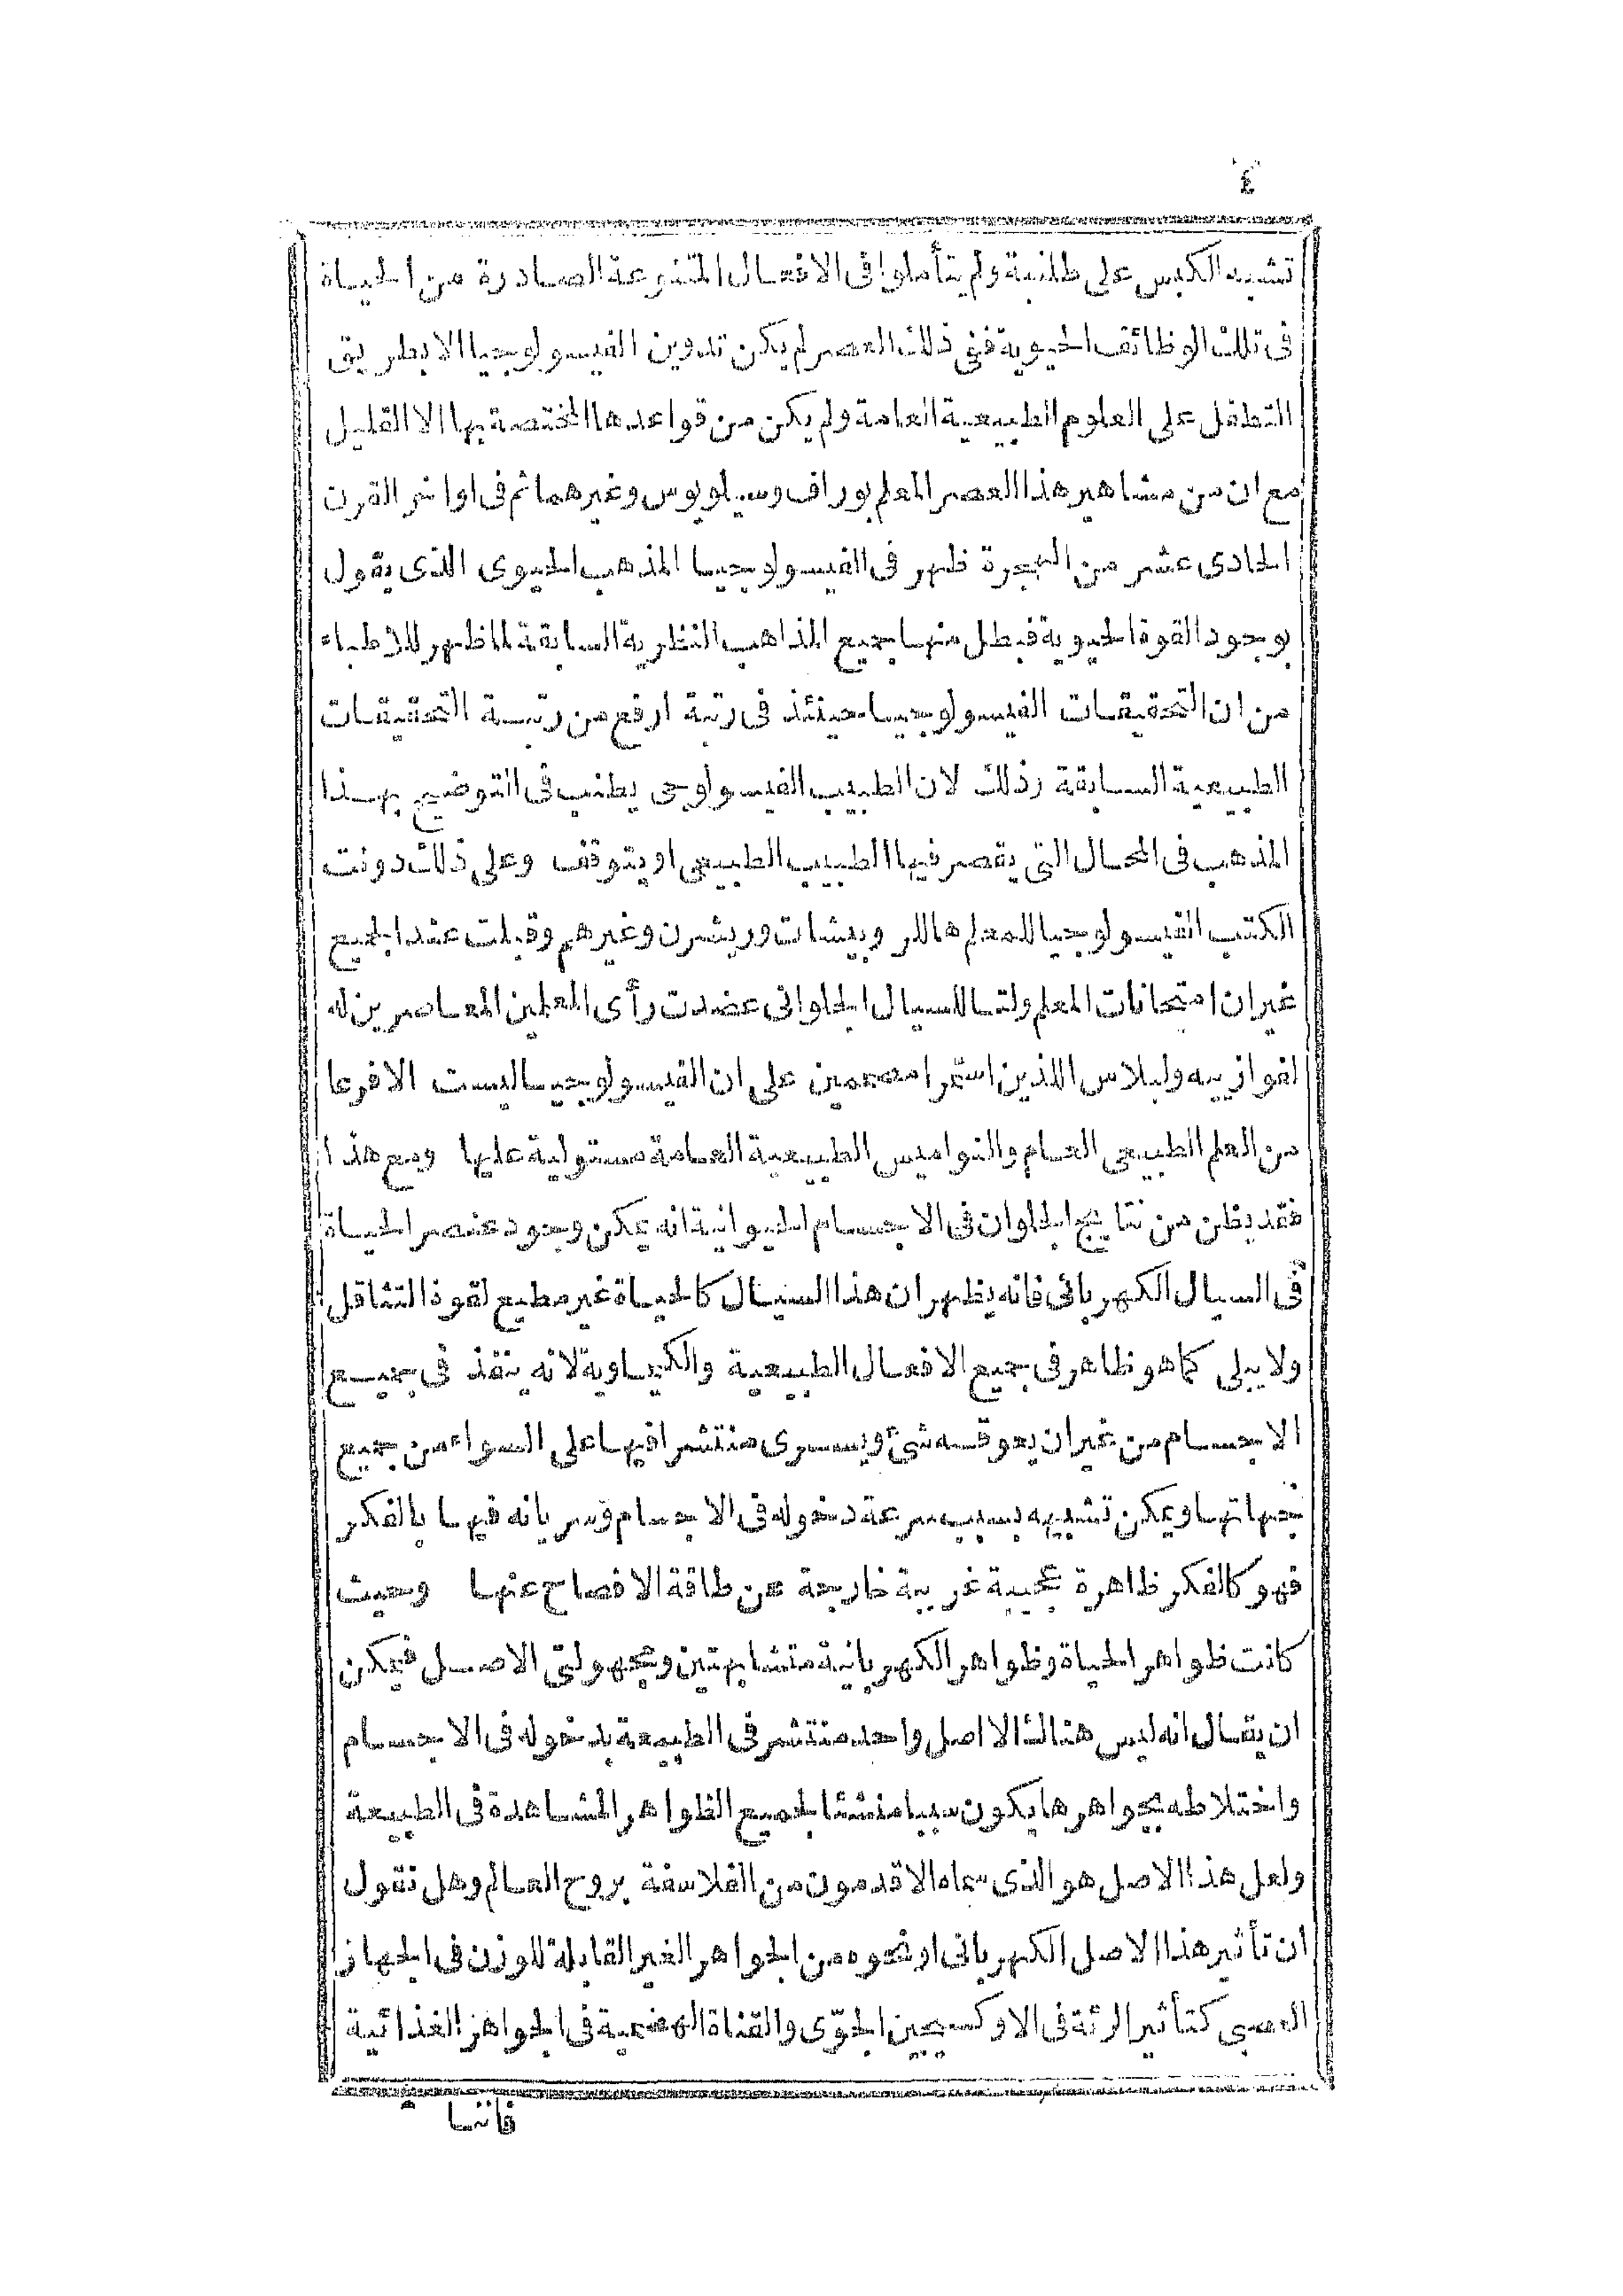 ٤
تشبه الكبس على طلنبة ولم يتأملوا فى الافعال المتنوعة الصادرة من الحياة
فى تلك الوظائف الحيوية ففى ذلك العصر لم يكن تدوين الفيسولوجيا الا بطريق
التطفل على العلوم الطبيعية العامة ولم يكن من قواعدها المختصة بها الا القليل
مع ان من مشاهير هذا العصر المعلم بوراف وسيلويوس وغيرهما ثم فى اواخر القرن
الحادى عشر من الهجرة ظهر فى الفيسولوجيا المذهب الحيوى الذى يقول
بوجود القوة الحيوية فبطل منها جميع المذاهب النظرية السابقة لما ظهر للاطباء
من ان التحقيقات الفيسولوجيا حينئذ فى رتبة ارفع من رتبة التحقيقات
الطبيعية السابقة وذلك لان الطبيب الفيسولوجى يطنب فى التوضيح بهذا
المذهب فى المحال التى يقصر فيها الطبيب الطبيعى او يتوقف وعلى ذلك دونت
الكتب الفيسولوجيا للمعلم هاللر وبيشات وريشرن وغيرهم وقبلت عند الجميع
غير ان امتحانات المعلم ولتا للسيال الجلوانى عضدت رأى المعلمين المعاصرين له
لفوازييه ولبلاس اللذين استمرا مصممين على ان الفيسولوجيا ليست الا فرعا
من العلم الطبيعى العام والنواميس الطبيعية العامة مستولية عليها ومع هذا
فقد يظن من نتايج الجلوان فى الاجسام الحيوانية انه يمكن وجود عنصر الحياة
فى السيال الكهربائى فانه يظهر ان هذا السيال كالحياة غير مطيع لقوة التثاقل
ولا يبلى كما هو ظاهر فى جميع الافعال الطبيعية والكيماوية لانه ينفذ فى جميع
الاجسام من غير ان يعوقه شئ ويسرى منتشرا فيها على السواء من جميع
جهاتها ويمكن تشبيهه بسبب سرعة دخوله فى الاجسام وسريانه فيها بالفكر
فهو كالفكر ظاهرة عجيبة غريبة خارجة عن طاقة الافصاح عنها وحيث
كانت ظواهر الحياة وظواهر الكهربائية متشابهتين ومجهولتى الاصل فيمكن
ان يقال انه ليس هنالك الا اصل واحد منتشر فى الطبيعة بدخوله فى الاجسام
واختلاطه بجواهرها يكون سببا منشئا لجميع الظواهر المشاهدة فى الطبيعة
ولعل هذا الاصل هو الذى سماه الاقدمون من الفلاسفة بروح العالم وهل نقول
ان تأثير هذا الاصل الكهربائى او نحوه من الجواهر الغير القابلة للوزن فى الجهاز
العصبى كتأثير الرئة فى الاوكسيجين الجوّى والقناة الهضمية فى الجواهر الغذائية
فاننا